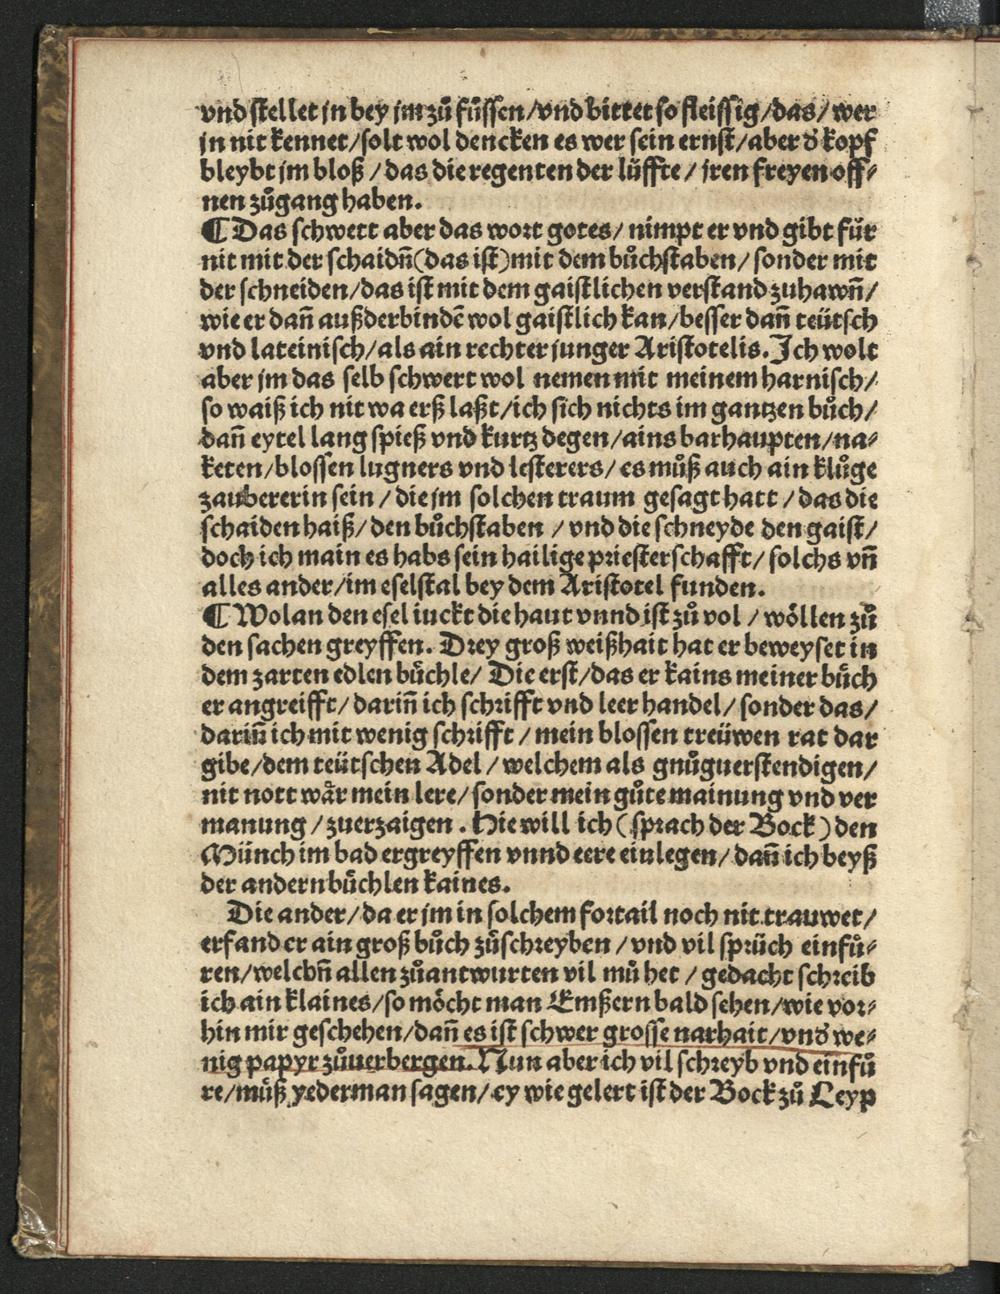 vnd stellet jn bey jm zů fůssen/vnd bittet so fleissig/das/wer
jn nit kennet/solt wol dencken es wer sein ernst/aber d̕ kopf
bleybt jm bloß/das die regenten der lüffte/jren freyen off⸗
nen zůgang haben.
¶ Das schwett aber das wort gotes/nimpt er vnd gibt für
nit mit der schaidn̄(das ist)mit dem bůchstaben/sonder mit
der schneiden/das ist mit dem gaistlichen verstand zuhawn̄/
wie er dañ außderbindē wol gaistlich kan/besser dañ teütsch
vnd lateinisch/als ain rechter junger Aristotelis. Ich wolt
aber jm das selb schwert wol nemen mit meinem harnisch/
so waiß ich nit wa erß laßt/ich sich nichts im gantzen bůch/
dañ eytel lang spieß vnd kurtz degen/ains barhaupten/na⸗
keten/blossen lugners vnd lesterers/es můß auch ain klůge
zaubererin sein/die jm solchen traum gesagt hatt/das die
schaiden haiß/den bůchstaben/vnd die schneyde den gaist/
doch ich main es habs sein hailige priesterschafft/solchs vn̄
alles ander/im eselstal bey dem Aristotel funden.
¶ Wolan den esel iuckt die haut vnnd ist zů vol/wöllen zů
den sachen greyffen. Drey groß weißhait hat er beweyset in
dem zarten edlen bůchle/Die erst/das er kains meiner bůch
er angreifft/dariñ ich schrifft vnd leer handel/sonder das/
dariñ ich mit wenig schrifft/mein blossen treüwen rat dar
gibe/dem teütschen Adel/welchem als gnůguerstendigen/
nit nott wår mein lere/sonder mein gůte mainung vnd ver
manung/zuerzaigen. Hie will ich(sprach der Bock)den
Münch im bad ergreyffen vnnd eere einlegen/dañ ich beyß
der andern bůchlen kaines.
Die ander/da er jm in solchem fortail noch nit trauwet/
erfand er ain groß bůch zůschreyben/vnd vil sprüch einfů⸗
ren/welchn̄ allen zůantwurten vil můhet/gedacht schreib
ich ain klaines/so möcht man Emßern bald sehen/wie vor⸗
hin mir geschehen/dañ es ist schwer grosse narhait/vnd̕ we⸗
nig papyr zůuerbergen. Nun aber ich vil schreyb vnd einfů
re/můß yederman sagen/ey wie gelert ist der Bock zů Leyp